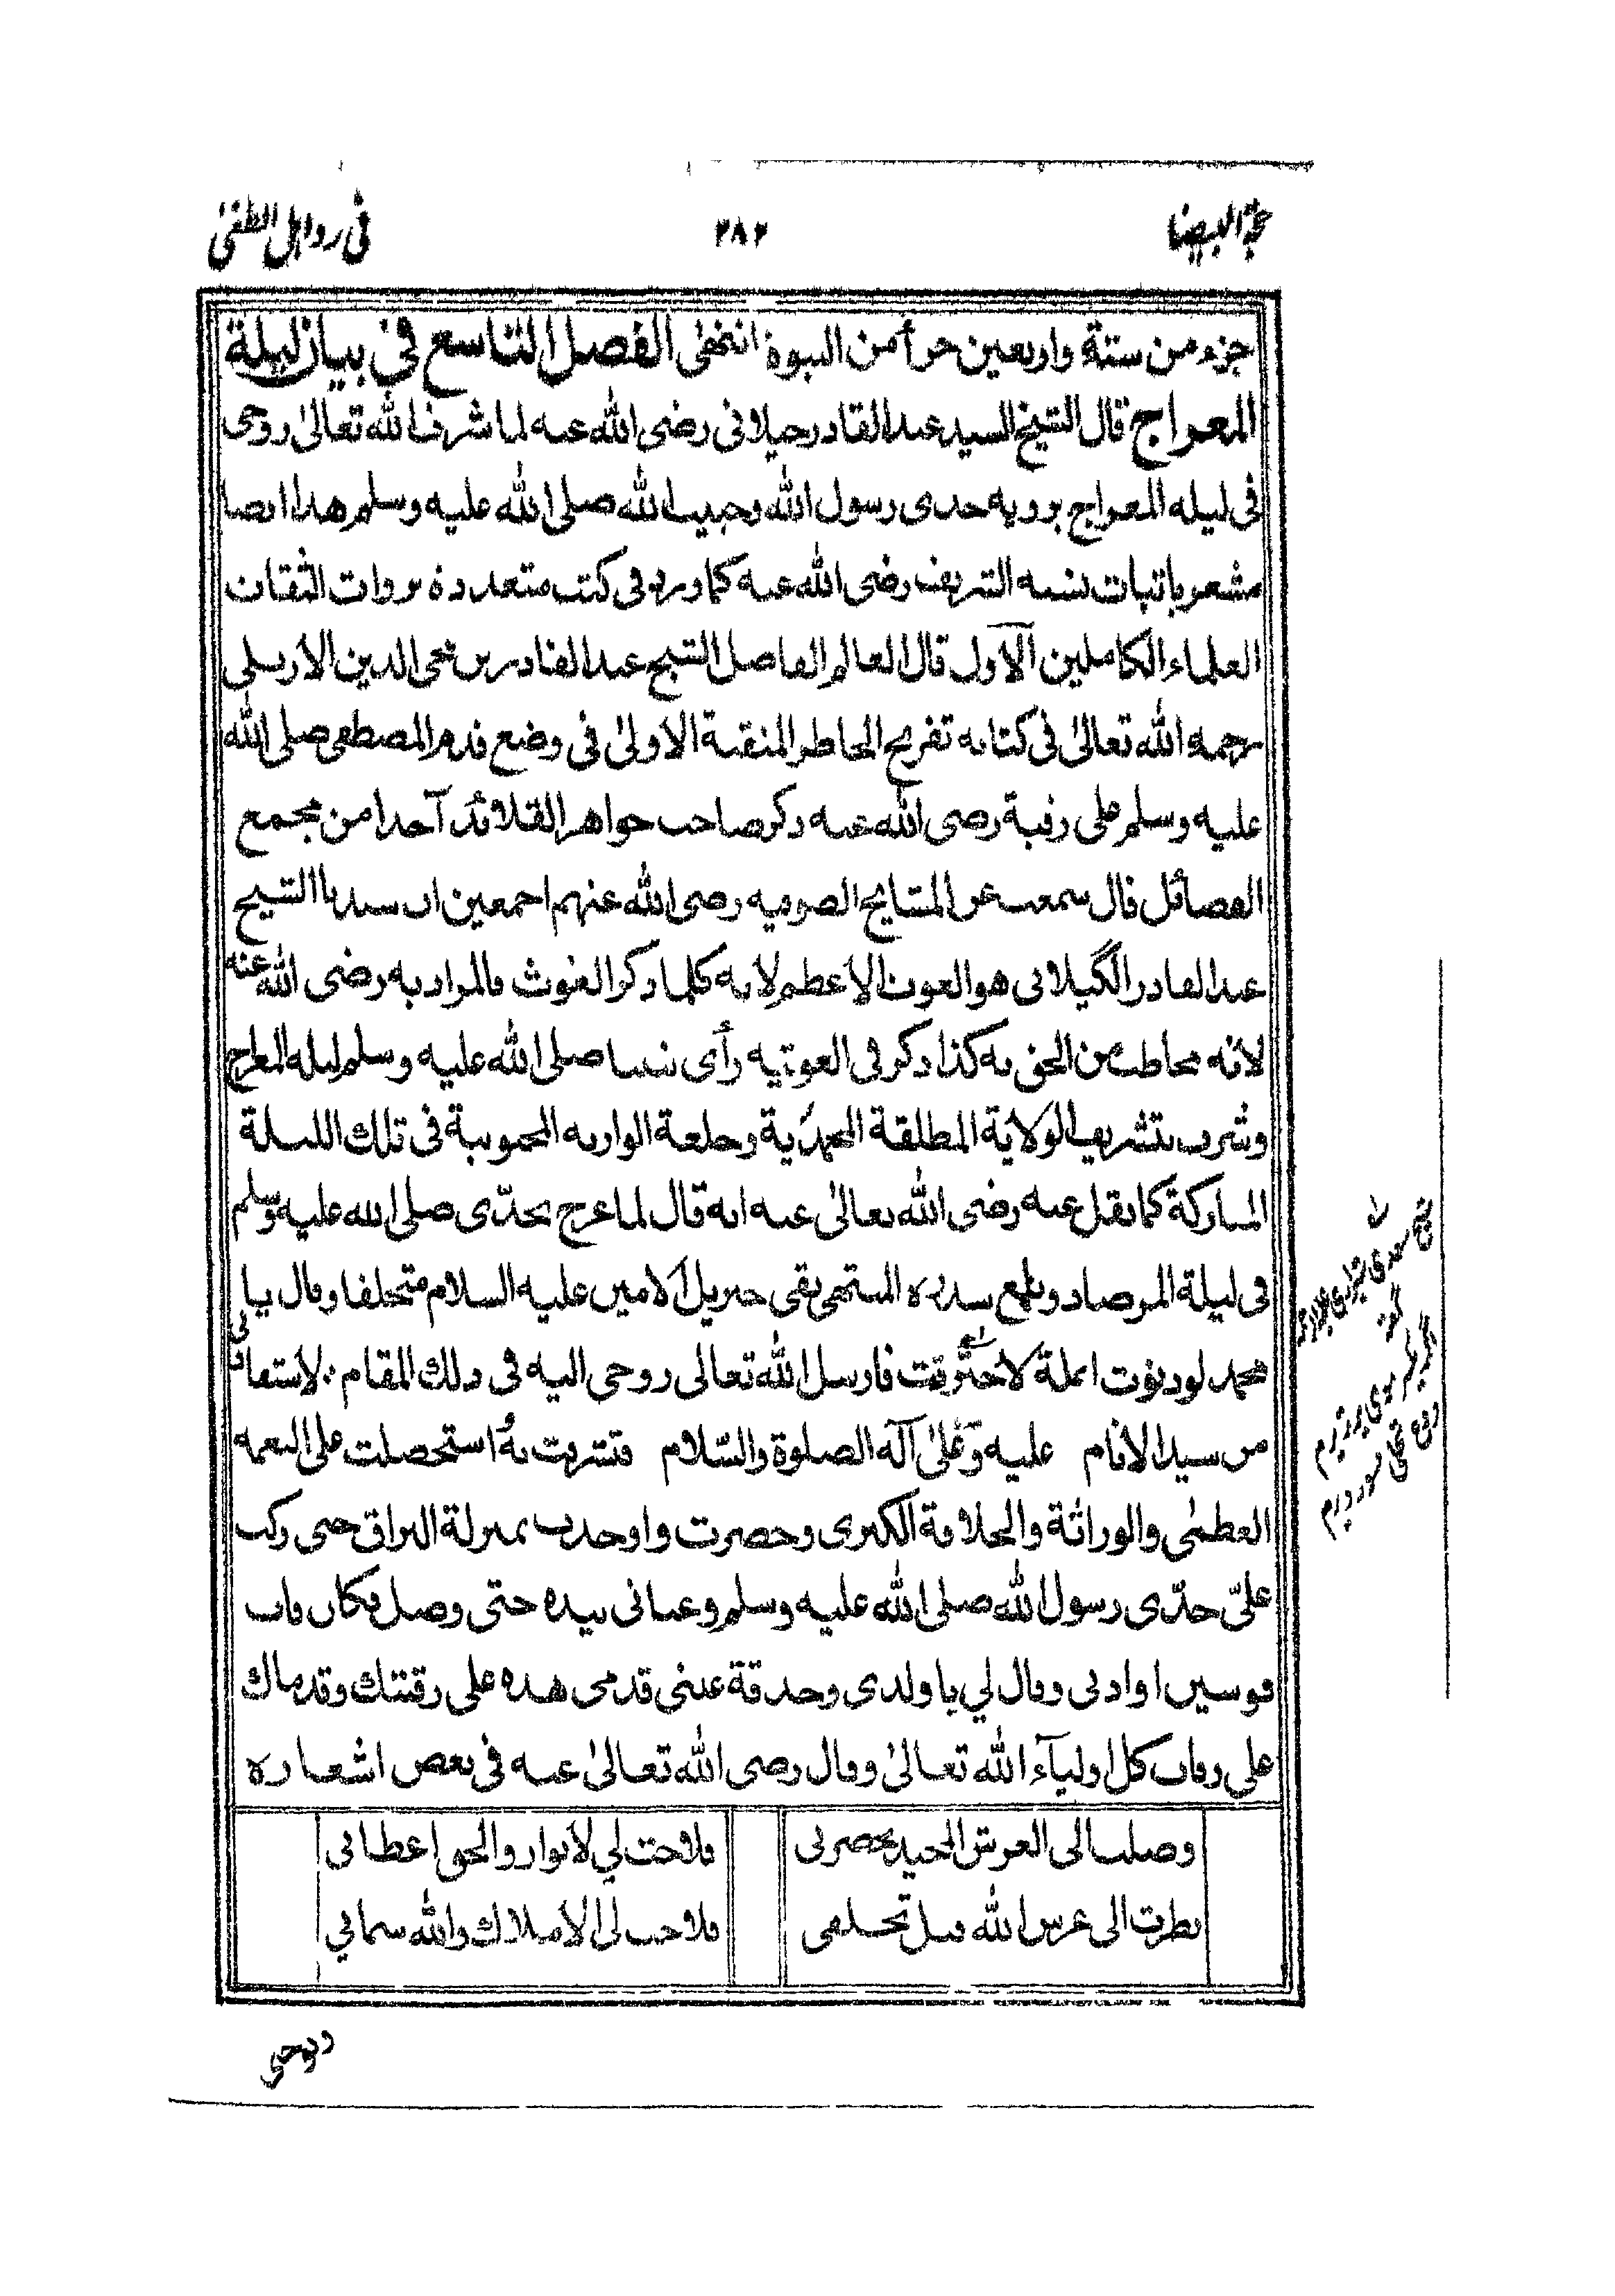 حجة البيضا
٢٨٢
فى رد اهل الطغى
جزء من ستة واربعين جزأ من النبوة انتهى الفصل التاسع فى بيان ليلة
المعراج قال الشيخ السيد عبد القادر جيلانى رضى الله عنه لما شرف الله تعالىٰ روحى
فى ليله المعراج برويه جدى رسول الله وحبيب الله صلى الله عليه وسلم هذا ايضا
مشعر باثبات نسبه الشريف رضى الله عنه كما ورد فى كتب متعدده بروات الثقات
العلماء الكاملين الآول قال العالم الفاضل الشيخ عبد القادر بن محى الدين الاربلى
رحمه الله تعالىٰ فى كتابه تفريح الخاطر المنقبة الاولىٰ فى وضع قدم المصطفى صلى الله
عليه وسلم على رقبة رضى الله عنه ذكر صاحب جواهر القلائد آخذا من مجمع
الفضائل قال سمعت عن المشايخ الصوفيه رضى الله عنهم اجمعين ان سيدنا الشيخ
عبد القادر الگيلانى هو الغوث الاعظم لانه كلما ذكر الغوث فالمراد به رضى الله عنه
لانه مخاطب من الحق به كذا ذكر فى الغوثيه رأى نبينا صلى الله عليه وسلم ليله المعراج
وشرف بتشريف الولاية المطلقة المحمدية وخلعة الوارثه المحبوبية فى تلك الليلة
المباركة كما نقل عنه رضى الله تعالىٰ عنه انه قال لما عرج بجدّى صلى الله عليه وسلم
فى ليلة المرصاد وبلغ سدره المنتهى بقى جبريل الامين عليه السلام متخلفا وقال يا
محمد لو دنوت انملة لاحترقت فارسل الله تعالى روحى اليه فى ذلك المقام لاستفادتى
من سيد الانام عليه وعلىٰ آله الصلوة والسّلام فتشرفت به استحصلت على النعمه
العظمىٰ والوراثة والخلافة الكبرى وحضرت واوجدت بمنزلة البراق حتى ركب
علىّ جدّى رسول الله صلى الله عليه وسلم وعنانى بيده حتى وصل فكان قاب
قوسين او ادنى وقال لي يا ولدى وحدقة عينى قدمى هذه على رقبتك وقدماك
على رقاب كل اوليآء الله تعالىٰ وقال رضى الله تعالىٰ عنه فى بعض اشعاره
وصلت الى العرش المجيد بحضرتى فلاحت لي الانوار والحق اعطانى
نظرت الى عرش الله قبل تخلقى فلاحت لى الاملاك والله سمانى
شيخ سعدى شيرازى
گفته
اگر يكسر موى برتر پرم
فروغ تجلى بسوزد پرم